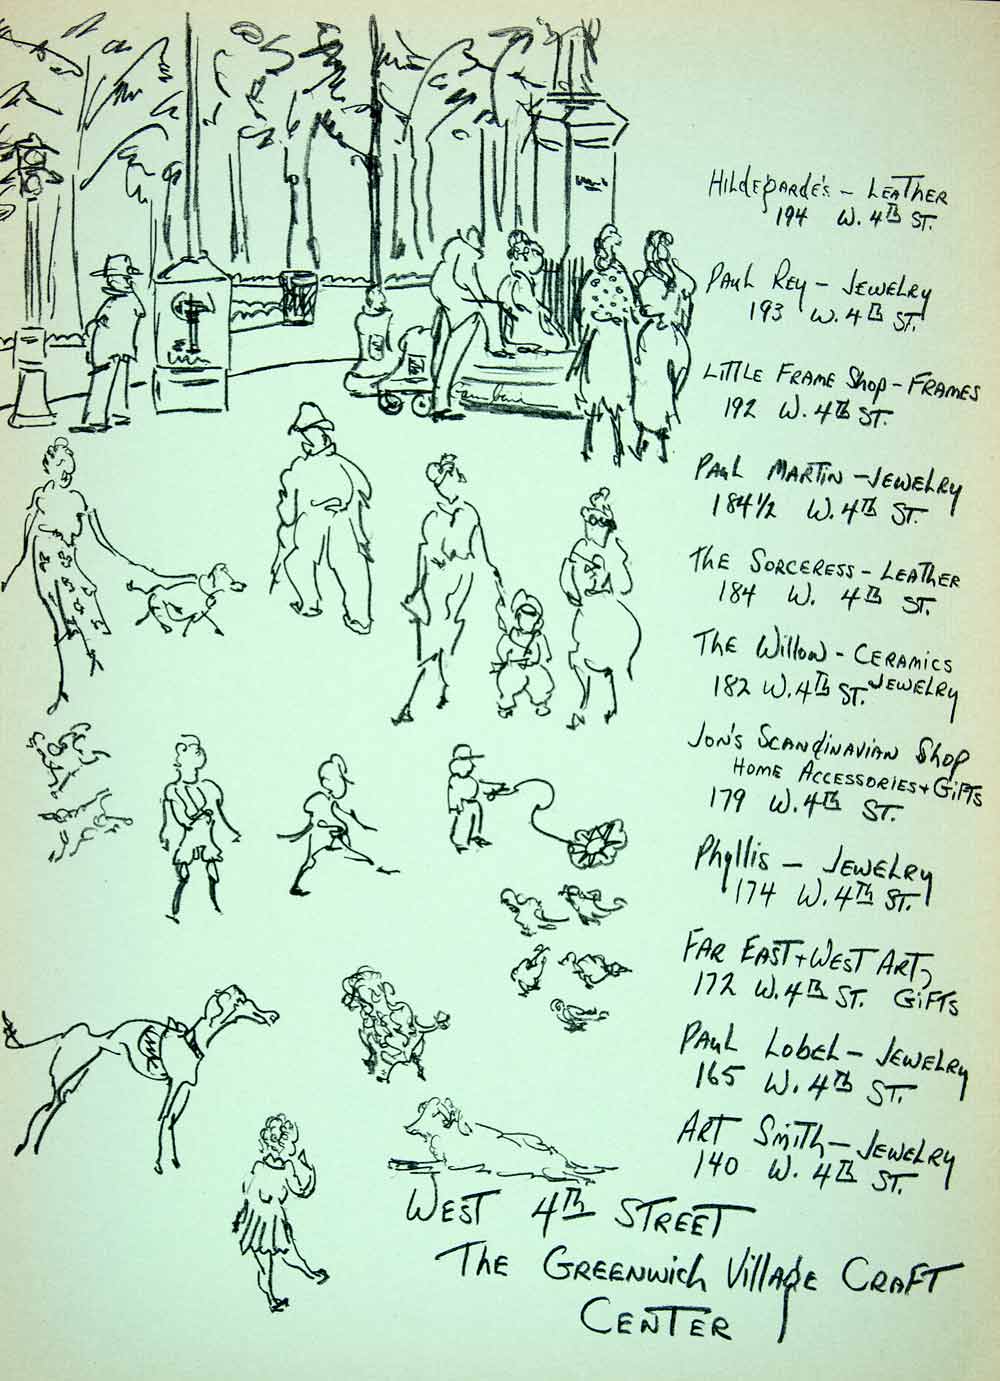 Hildegarde's - Leather
194 W. 4th St.
Paul Rey - Jewelry
193 W. 4th St.
Little Frame Shop - Frames
192 W. 4th St.
Paul Martin - Jewelry
184 1/2 W. 4th St.
The Sorceress - Leather
184 W. 4th St.
The Willow - Ceramics
182 W. 4th St. Jewelry
Jon's Scandinavian Shop
Home Accessories + Gifts
179 W. 4th St.
Phyllis - Jewelry
174 W. 4th St.
Far East + West Art,
172 W. 4th St. Gifts
Paul Lobel - Jewelry
165 W. 4th St.
Art Smith - Jewelry
140 W. 4th St.
West 4th Street
The Greenwich Village Craft
Center